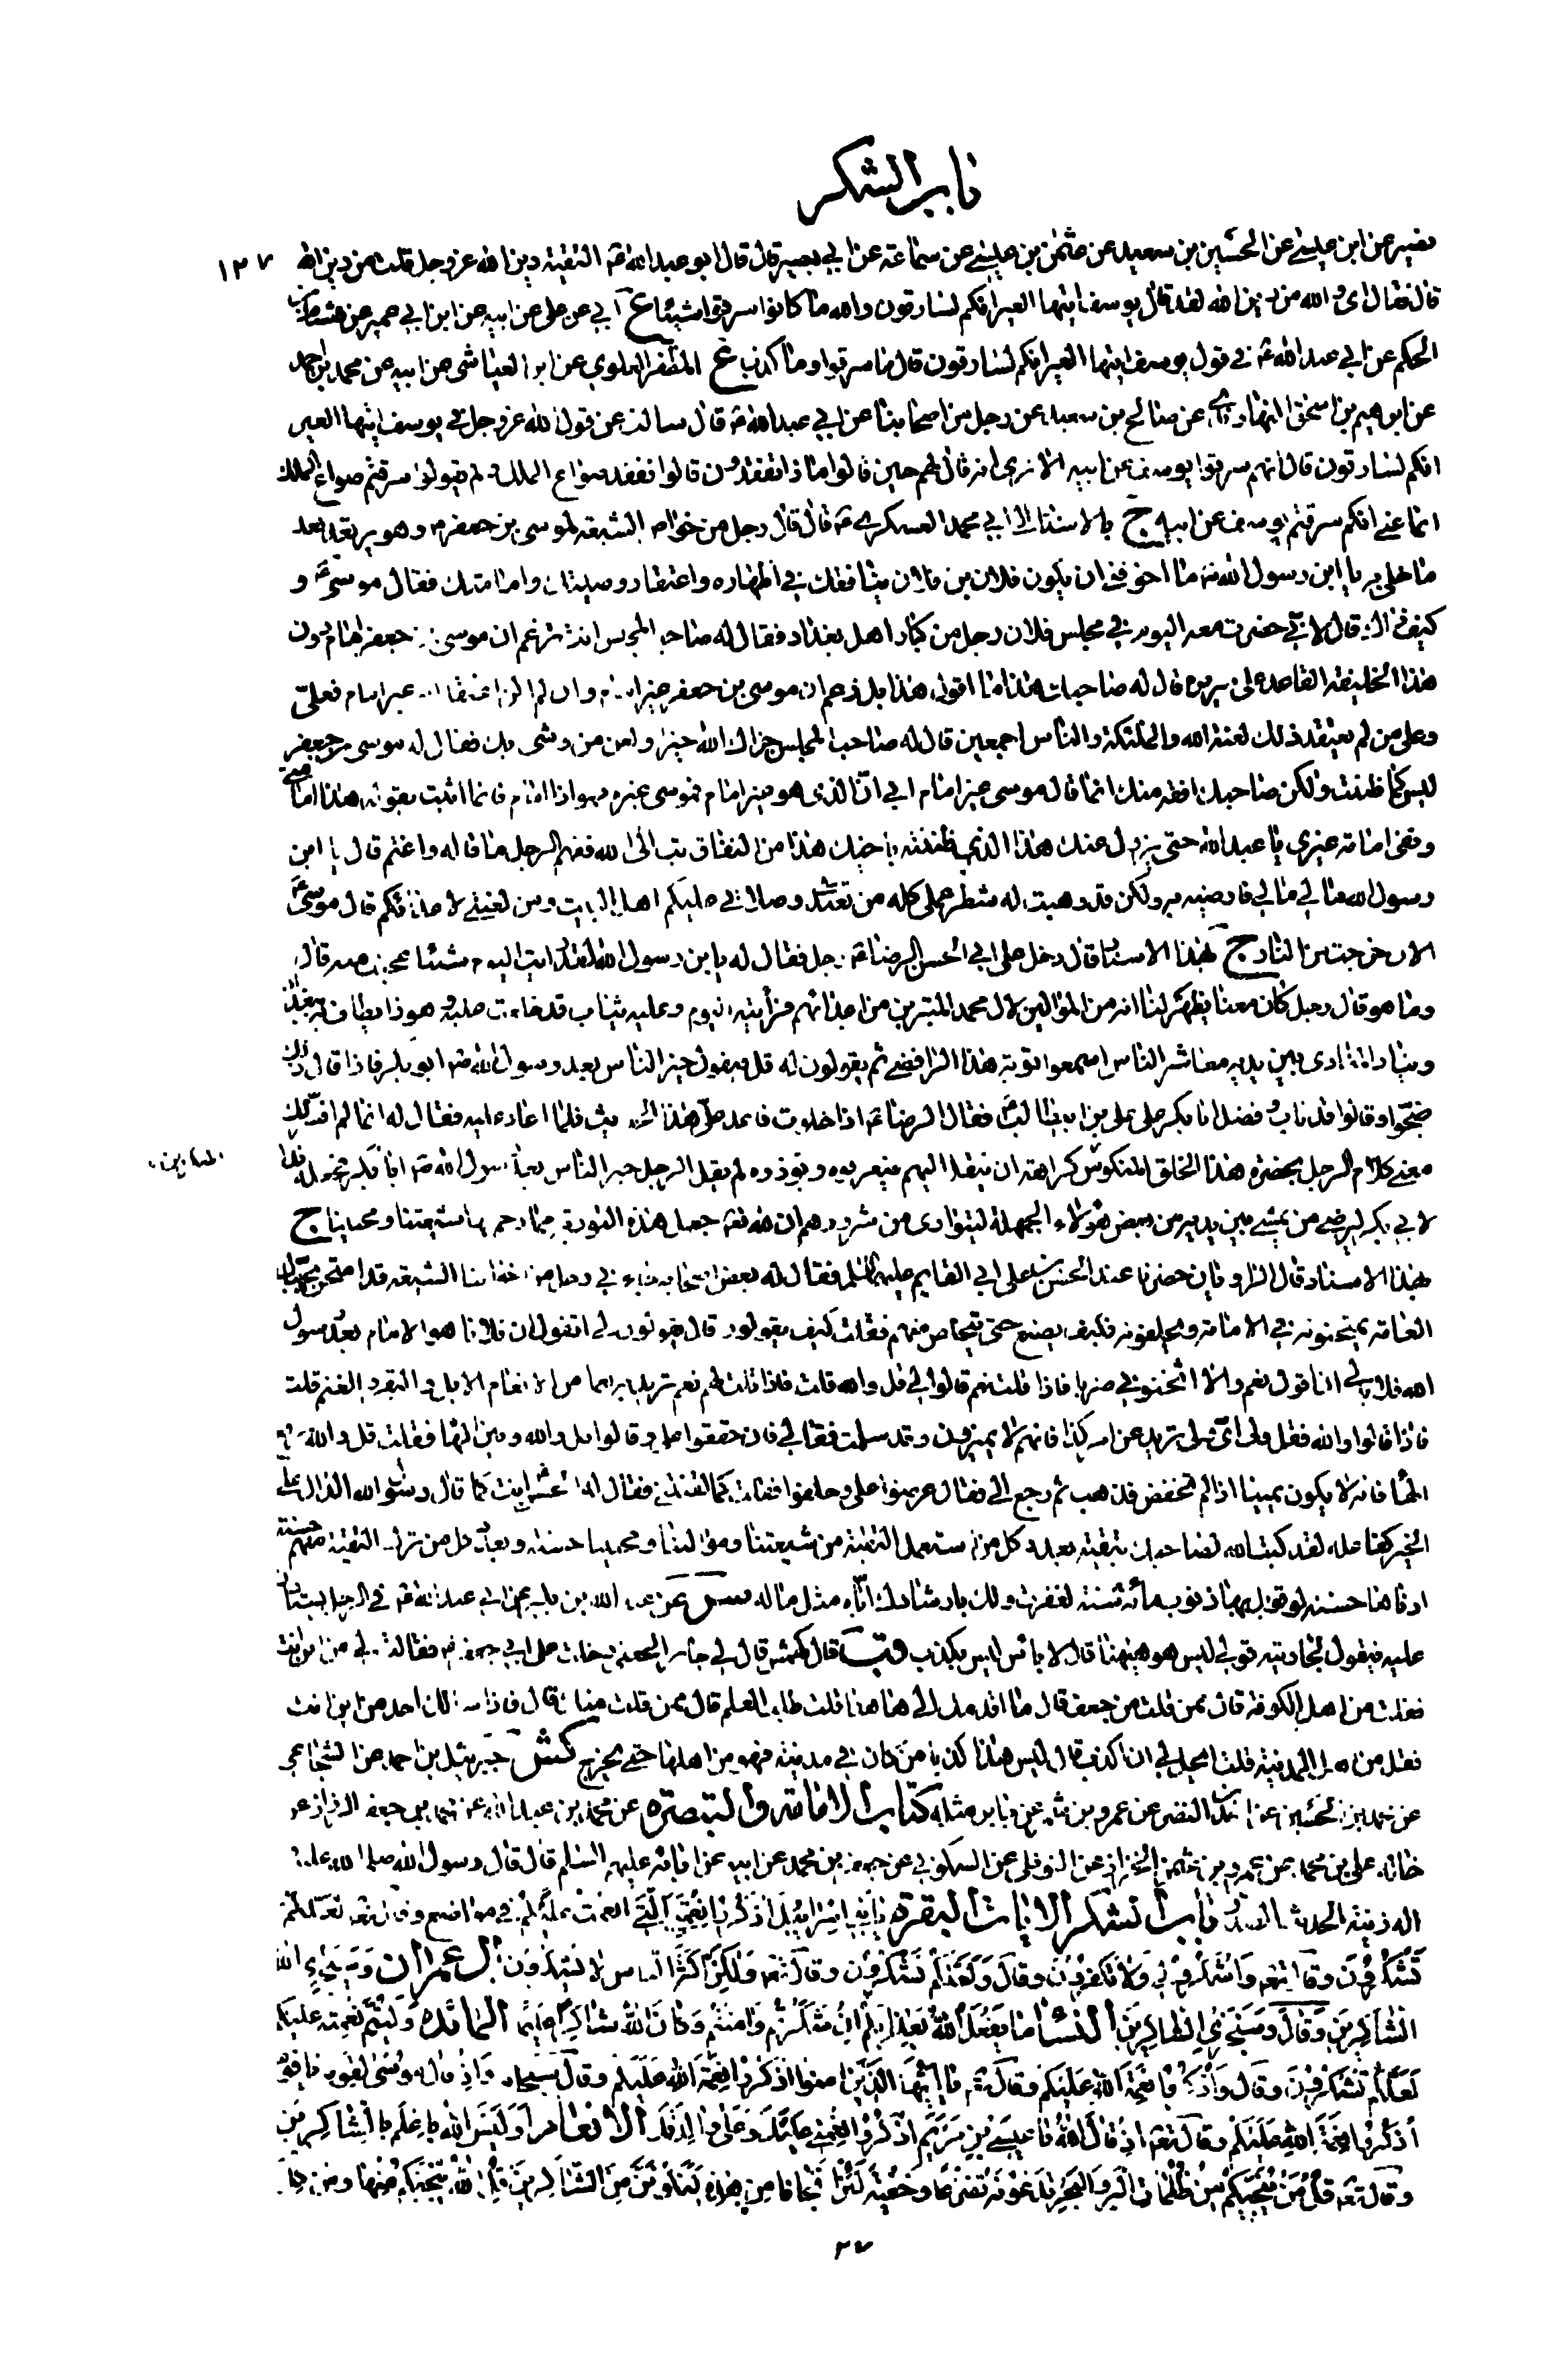 باب الشكر
١٣٧
نصير عن ابن عيسى عن الحسين بن سعيد عن عثمن بن عيسى عن سماعة عن ابي بصير قال قال ابو عبد الله ع التقية دين الله عز وجل قلت من دين الله
قال فقال اي والله من دين الله لقد قال يوسف ايتها العير انكم لسارقون والله ما كانوا سرقوا شيئا ع ابي عن علي عن ابيه عن ابن ابي عمير عن هشام بن
الحكم عن ابي عبد الله ع في قول يوسف ايتها العير انكم لسارقون قال ما سرقوا وما كذب ع المظفر العلوي عن ابن العياشي عن ابيه عن محمد بن احمد
عن ابرهيم بن اسحق النهاوندي عن صالح بن سعيد عن رجل من اصحابنا عن ابي عبد الله ع قال سالته عن قول الله عز وجل في يوسف ايتها العير
انكم لسارقون قال انهم سرقوا يوسف من ابيه الا ترى انه قال لهم حين قالوا ماذا تفقدون قالوا نفقد صواع الملك ولم يقولوا سرقتم صواع الملك
انما عنى انكم سرقتم يوسف عن ابيه ج بالاسناد الى ابي محمد العسكري ع قال قال رجل من خواص الشيعة لموسى بن جعفر ع وهو يرتعد بعد
ما خلا به يا ابن رسول الله ص ما اخوفني ان يكون فلان بن فلان ينافقك في اظهاره واعتقاد وصيتك وامامتك فقال موسى ع و
كيف ذاك قال لاني حضرت معه اليوم في مجلس فلان رجل من كبار اهل بغداد فقال له صاحب المجلس انت تزعم ان موسى بن جعفر امام دون
هذا الخليفة القاعد على سريره قال له صاحبك هذا ما اقول هذا بل ازعم ان موسى بن جعفر غير امام وان لم اكن اعتقد انه غير امام فعلي
وعلى من لم يعتقد ذلك لعنة الله والملئكة والناس اجمعين قال له صاحب المجلس جزاك الله خيرا ولعن من وشى بك فقال له موسى بن جعفر
ليس كما ظننت ولكن صاحبك افقه منك انما قال موسى غير امام اي ان الذي هو غير امام فموسى غيره فهو اذا امام فانما اثبت بقوله هذا امامتي
ونفى امامة غيري يا عبد الله متى يزول عنك هذا الذي ظننته باخيك هذا من النفاق تب الى الله ففهم الرجل ما قاله واغتم قال يا ابن
رسول الله مالي مال فارضيه به ولكن قد وهبت له شطر عملي كله من تعبدي وصلاتي عليكم اهل البيت ومن لعنتي لاعدائكم قال موسى ع
الان خرجت من النار ج بهذا الاسناد قال دخل على ابي الحسن الرضا ع رجل فقال له يا بن رسول الله لقد رايت اليوم شيئا عجبت منه قال
وما هو قال رجل كان معنا يظهر لنا انه من الموالين لال محمد المتبرين من اعدائهم فرأيته اليوم وعليه ثياب قد خلعت عليه وهو ذا يطاف به ببغداد
وينادي المنادي بين يديه معاشر الناس اسمعوا توبة هذا الرافضي ثم يقولون له قل فيقول خير الناس بعد رسول الله ص ابو بكر فاذا قال ذلك
ضجوا وقالوا قد تاب وفضل ابا بكر على علي بن ابي طالب فقال الرضا ع اذا خلوت فاعد علي هذا الحديث فلما اعاد عليه فقال له انما لم افسر لك
معنى كلام الرجل بحضرة هذا الخلق المنكوس كراهة ان ينقل اليهم فيعرفوه ويؤذوه لم يقل الرجل خير الناس بعد رسول الله ص ابا بكر
لابي بكر ليرضي من يمشي بين يديه من بعض هؤلاء الجهلة ليتوارى من شرورهم ان الله تع جعل هذه التورية مما رحم بها شيعتنا ومحبينا ج
بهذا الاسناد قال الراوي حضرنا عند الحسن بن علي ابي القايم عليهما السلم فقال له بعض اصحابه جاءني رجل من اخواننا الشيعة قد امتحن بجهال
العامة يمتحنونه في الامامة ويحلفونه فكيف يصنع حتى يتخلص منهم فقلت كيف يقولون قال يقولون لي اتقول ان فلانا هو الامام بعد رسول
الله فلا بد لي ان اقول نعم والا اثخنوني ضربا فاذا قلت نعم قالوا لي قل والله قلت فاذا قلت لهم نعم تريد به نعما من الانعام الابل والبقر والغنم قلت
فاذا قالوا والله فقل ولى اي ولى تريد عن امر كذا فانهم لا يميزون وقد سلمت فقال لي فان حققوا علي وقالوا قل والله وبين الهاء فقلت قل والله برفع
الهاء فانه لا يكون يمينا اذا لم تخفض فذهب ثم رجع الي فقال عرضوا علي وحلفوني فقلت كما لقنتني فقال له الحسن ع انت كما قال رسول الله الدال على
الخير كفاعله لقد كتب الله لصاحبك بتقيته بعدد كل من استعمل التقية من شيعتنا وموالينا ومحبينا حسنة وبعدد كل من ترك التقية منهم حسنة
ادناها حسنة لو قوبل بها ذنوب مائة سنة لغفرت ولك بارشادك اياه مثل ماله سر عن عبد الله بن بكير عن ابي عبد الله ع في الرجل يستاذن
عليه فيقول لجاريته قولي ليس هو ههنا قال لا باس ليس بكذب قب قال لي جابر الجعفي دخلت على ابي جعفر ع فقال لي من اين انت
فقلت من اهل الكوفة قال ممن قلت من جعف قال ما اقدمك الى هاهنا قلت طلب العلم قال ممن قلت منك قال فاذا سالك احد من اين انت
فقل من اهل المدينة قلت ايحل لي ان اكذب قال ليس هذا كذبا من كان في مدينة فهو من اهلها حتى يخرج كش جبرئيل بن احمد عن الشجاعي
عن محمد بن الحسين عن احمد بن النضر عن عمرو بن شمر عن جابر مثله كتاب الامامة والتبصرة عن محمد بن عبد الله عن محمد بن جعفر الرزاز عن
خاله علي بن محمد عن عمرو بن عثمن الخزاز عن النوفلي عن السكوني عن جعفر بن محمد عن ابيه عن ابائه عليهم السلم قال قال رسول الله صلى الله عليه
باب الشكر الايات البقرة يا بني اسرائيل اذكروا نعمتي التي انعمت عليكم في مواضع وقال تع لعلكم
تشكرون وقال تع واشكروا لي ولا تكفرون وقال ولعلكم تشكرون وقال تع ولكن اكثر الناس لا يشكرون ال عمران وسيجزي الله
الشاكرين وقال وسنجزي الشاكرين النساء ما يفعل الله بعذابكم ان شكرتم وامنتم وكان الله شاكرا عليما المائدة وليتم نعمته عليكم
لعلكم تشكرون وقال واذكروا نعمة الله عليكم وقال تع يا ايها الذين امنوا اذكروا نعمة الله عليكم وقال سبحانه واذ قال موسى لقومه يا قوم
اذكروا نعمة الله عليكم وقال تع اذ قال الله يا عيسى بن مريم اذكر نعمتي عليك وعلى والدتك الانعام اوليس الله باعلم بالشاكرين
وقال تع قل من ينجيكم من ظلمات البر والبحر تدعونه تضرعا وخفية لئن انجانا من هذه لنكونن من الشاكرين قل الله ينجيكم منها ومن كل
٣٧